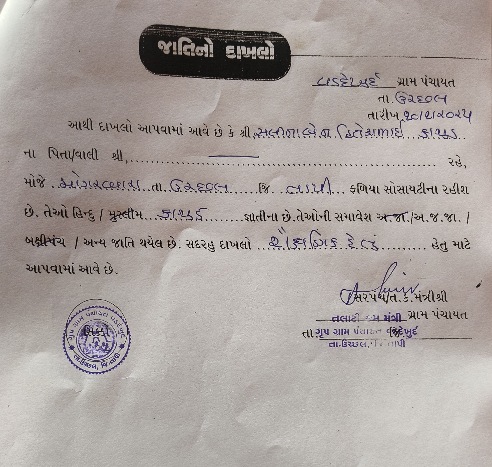 જાતિનો દાખલો
વડદેખુર્દ ગ્રામ પંચાયત
તા. ઉચ્છલ
તારીખ
આથી દાખલો આપવામાં આવે છે કે શ્રી હિતેશભાઈ
ના પિતા/વાલી શ્રી, ............ રહે,
મોજે તા. ઉચ્છલ જિ તાપી ફળિયા સોસાયટીના રહીશ
છે. તેઓ હિન્દુ / મુસ્લીમ જ્ઞાતીના છે. તેઓની સમાવેશ અ.જા./અ.જ.જા. /
બક્ષીપંચ / અન્ય જાતિ થયેલ છે. સદરહુ દાખલો શૈક્ષણિક હેતુ હેતુ માટે
આપવામાં આવે છે.
સરપંચ/ત.ક.મંત્રીશ્રી
તલાટી મંત્રી ગ્રામ પંચાયત
તા. ગ્રુપ ગ્રામ પંચાયત વડદેખુર્દ
તા.ઉચ્છલ, જિ.તાપી